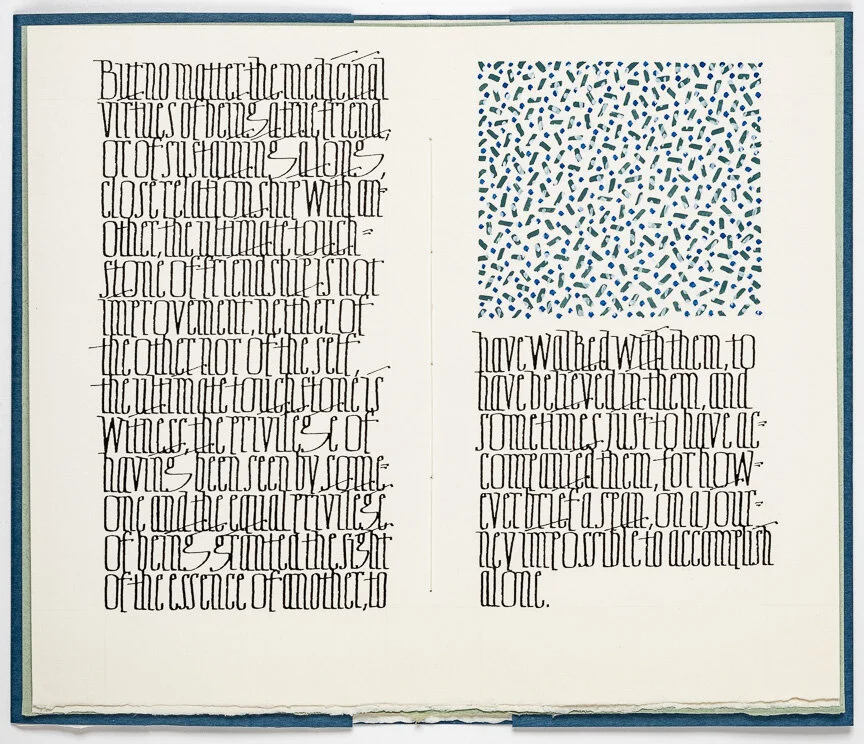 But no matter the medicinal
virtues of being a true friend,
or of sustaining a long,
close relationship with an-
other, the ultimate touch-
stone of friendship is not
improvement, neither of
the other nor of the self,
the ultimate touchstone is
witness, the privilege of
having been seen by some-
one and the equal privilege
of being granted the sight
of the essence of another, to
have walked with them, to
have believed in them, and
sometimes just to have ac-
companied them, for how-
ever brief a span, on a jour-
ney impossible to accomplish
alone.